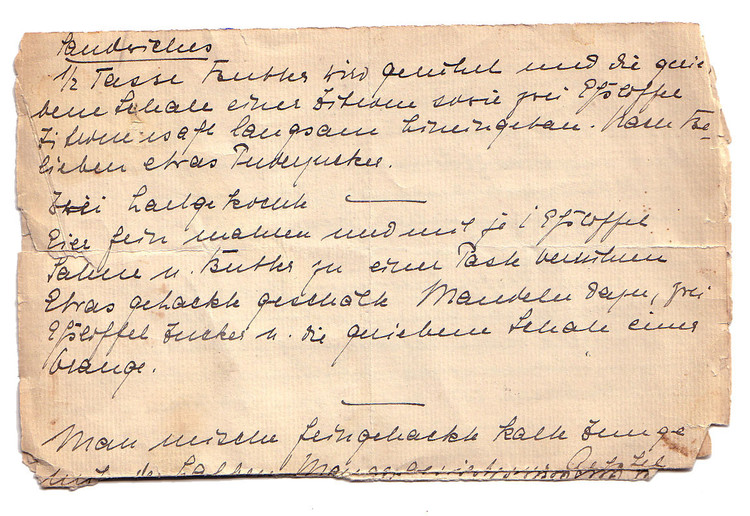 Sandwiches
1/2 Tasse Butter wird gerührt und die gerie-
bene Schale einer Zitrone sowie zwei Eßlöffel
Zitronensaft langsam hineingeban. Nach Be-
lieben etwas Puderzucker.
Zwei hartgekochte
Eier fein mahlen und mit je 1 Eßlöffel
Sahne u. Butter zu einer Paste verrühren
Etwas gehackte geschälte Mandeln dazu, zwei
Eßlöffel Zucker u. die geriebene Schale einer
Orange.
Man mische feingehackte kalte Zunge
mit der halben